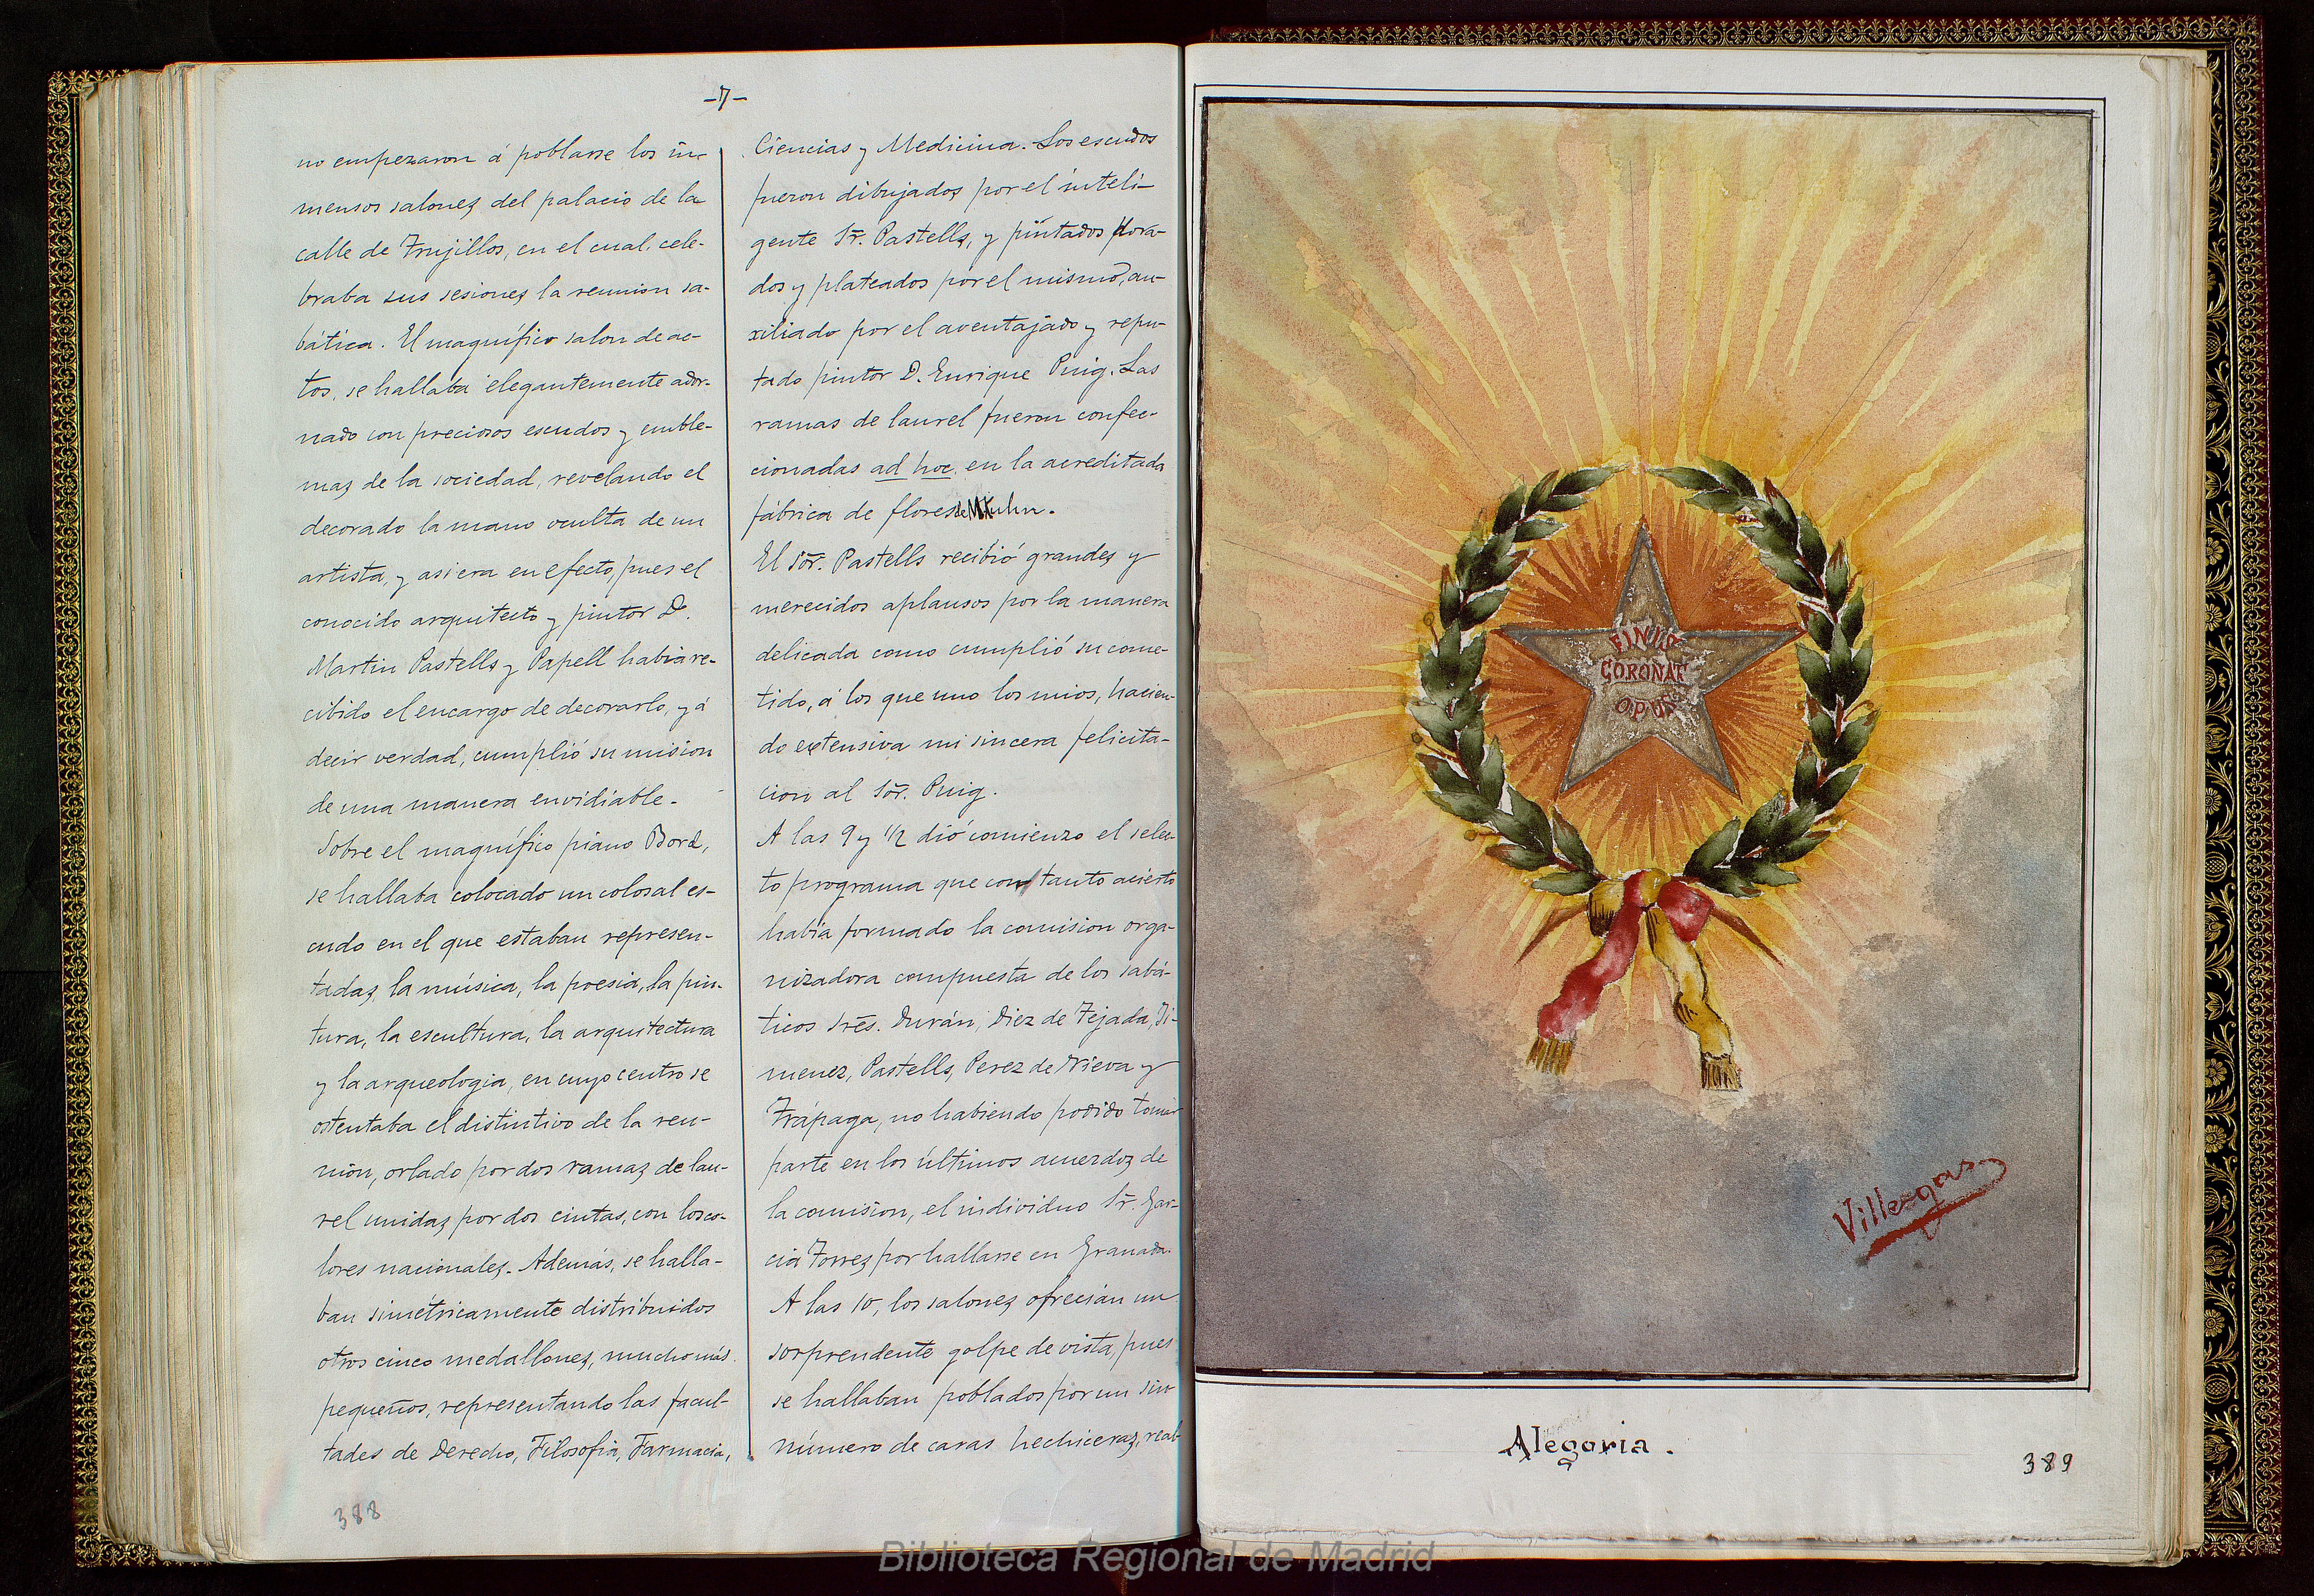 -7-
no empezaron á poblarse los in-
mensos salones del palacio de la
calle de Trujillos, en el cual, cele-
braba sus sesiones la reunion sa-
bática. El magnífico salon de ac-
tos, se hallaba elegantemente ador-
nado con preciosos escudos y emble-
mas de la sociedad, revelando el
decorado la mano oculta de un
artista, y asi era en efecto, pues el
conocido arquitecto y pintor D.
Martin Pastells y Papell habia re-
cibido el encargo de decorarlo, y á
decir verdad, cumplió su mision
de una manera envidiable.
Sobre el magnífico piano Bord,
se hallaba colocado un colosal es-
cudo en el que estaban represen-
tadas, la música, la poesia, la pin-
tura, la escultura, la arquitectura
y la arqueologia, en cuyo centro se
ostentaba el distintivo de la reu-
nion, orlado por dos ramas de lau-
rel unidas por dos cintas, con los co-
lores nacionales. Además, se halla-
ban simétricamente distribuidos
otros cinco medallones, mucho más
pequeños, representando las facul-
tades de Derecho, Filosofia, Farmacia,
388
Ciencias y Medicina. Los escudos
fueron dibujados por el inteli-
gente Sr. Pastells, y pintados dora-
dos y plateados por el mismo, au-
xiliado por el aventajado y repu-
tado pintor D. Enrique Puig. Las
ramas de laurel fueron confec-
cionadas ad hoc, en la acreditada
fábrica de flores de
El Sor. Pastells recibió grandes y
merecidos aplausos por la manera
delicada como cumplió su come-
tido, á los que uno los mios, hacien-
do extensiva mi sincera felicita-
cion al Sor. Puig.
A las 9 y 1/2 dió comienzo el selec-
to programa que con tanto acierto
habia formado la comision orga-
nizadora compuesta de los sabá-
ticos Sres. Durán, Diez de Tejada, Ji-
menez, Pastells, Perez de Nieva y
Trápaga, no habiendo podido tomar
parte en los últimos acuerdos de
la comision, el individuo Sr. Gar-
cia Torres por hallarse en Granada.
A las 10, los salones ofrecian un
sorprendente golpe de vista, pues
se hallaban poblados por un sin
número de caras hechiceras, real-
FINIS
CORONAT
OPUS
Villegas
Alegoria.
389
Biblioteca Regional de Madrid